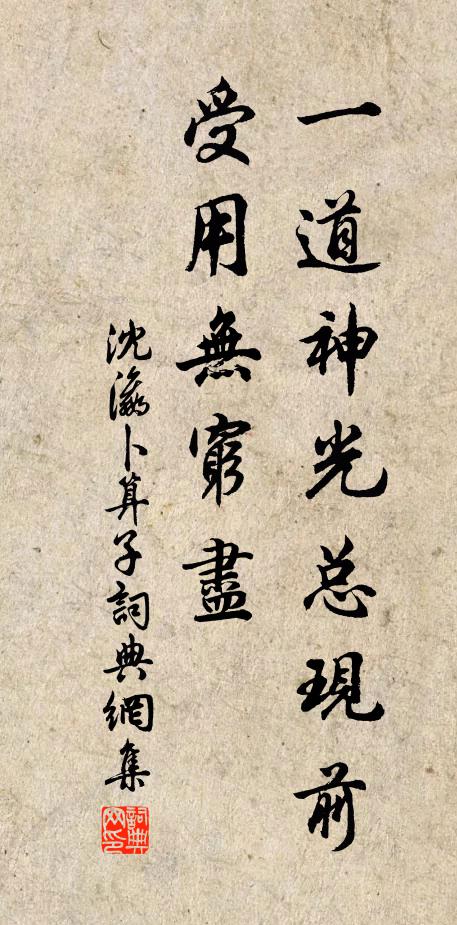 一道神光总現前
受用無窮盡
沈瀛卜算子詞典網集
詞典网印